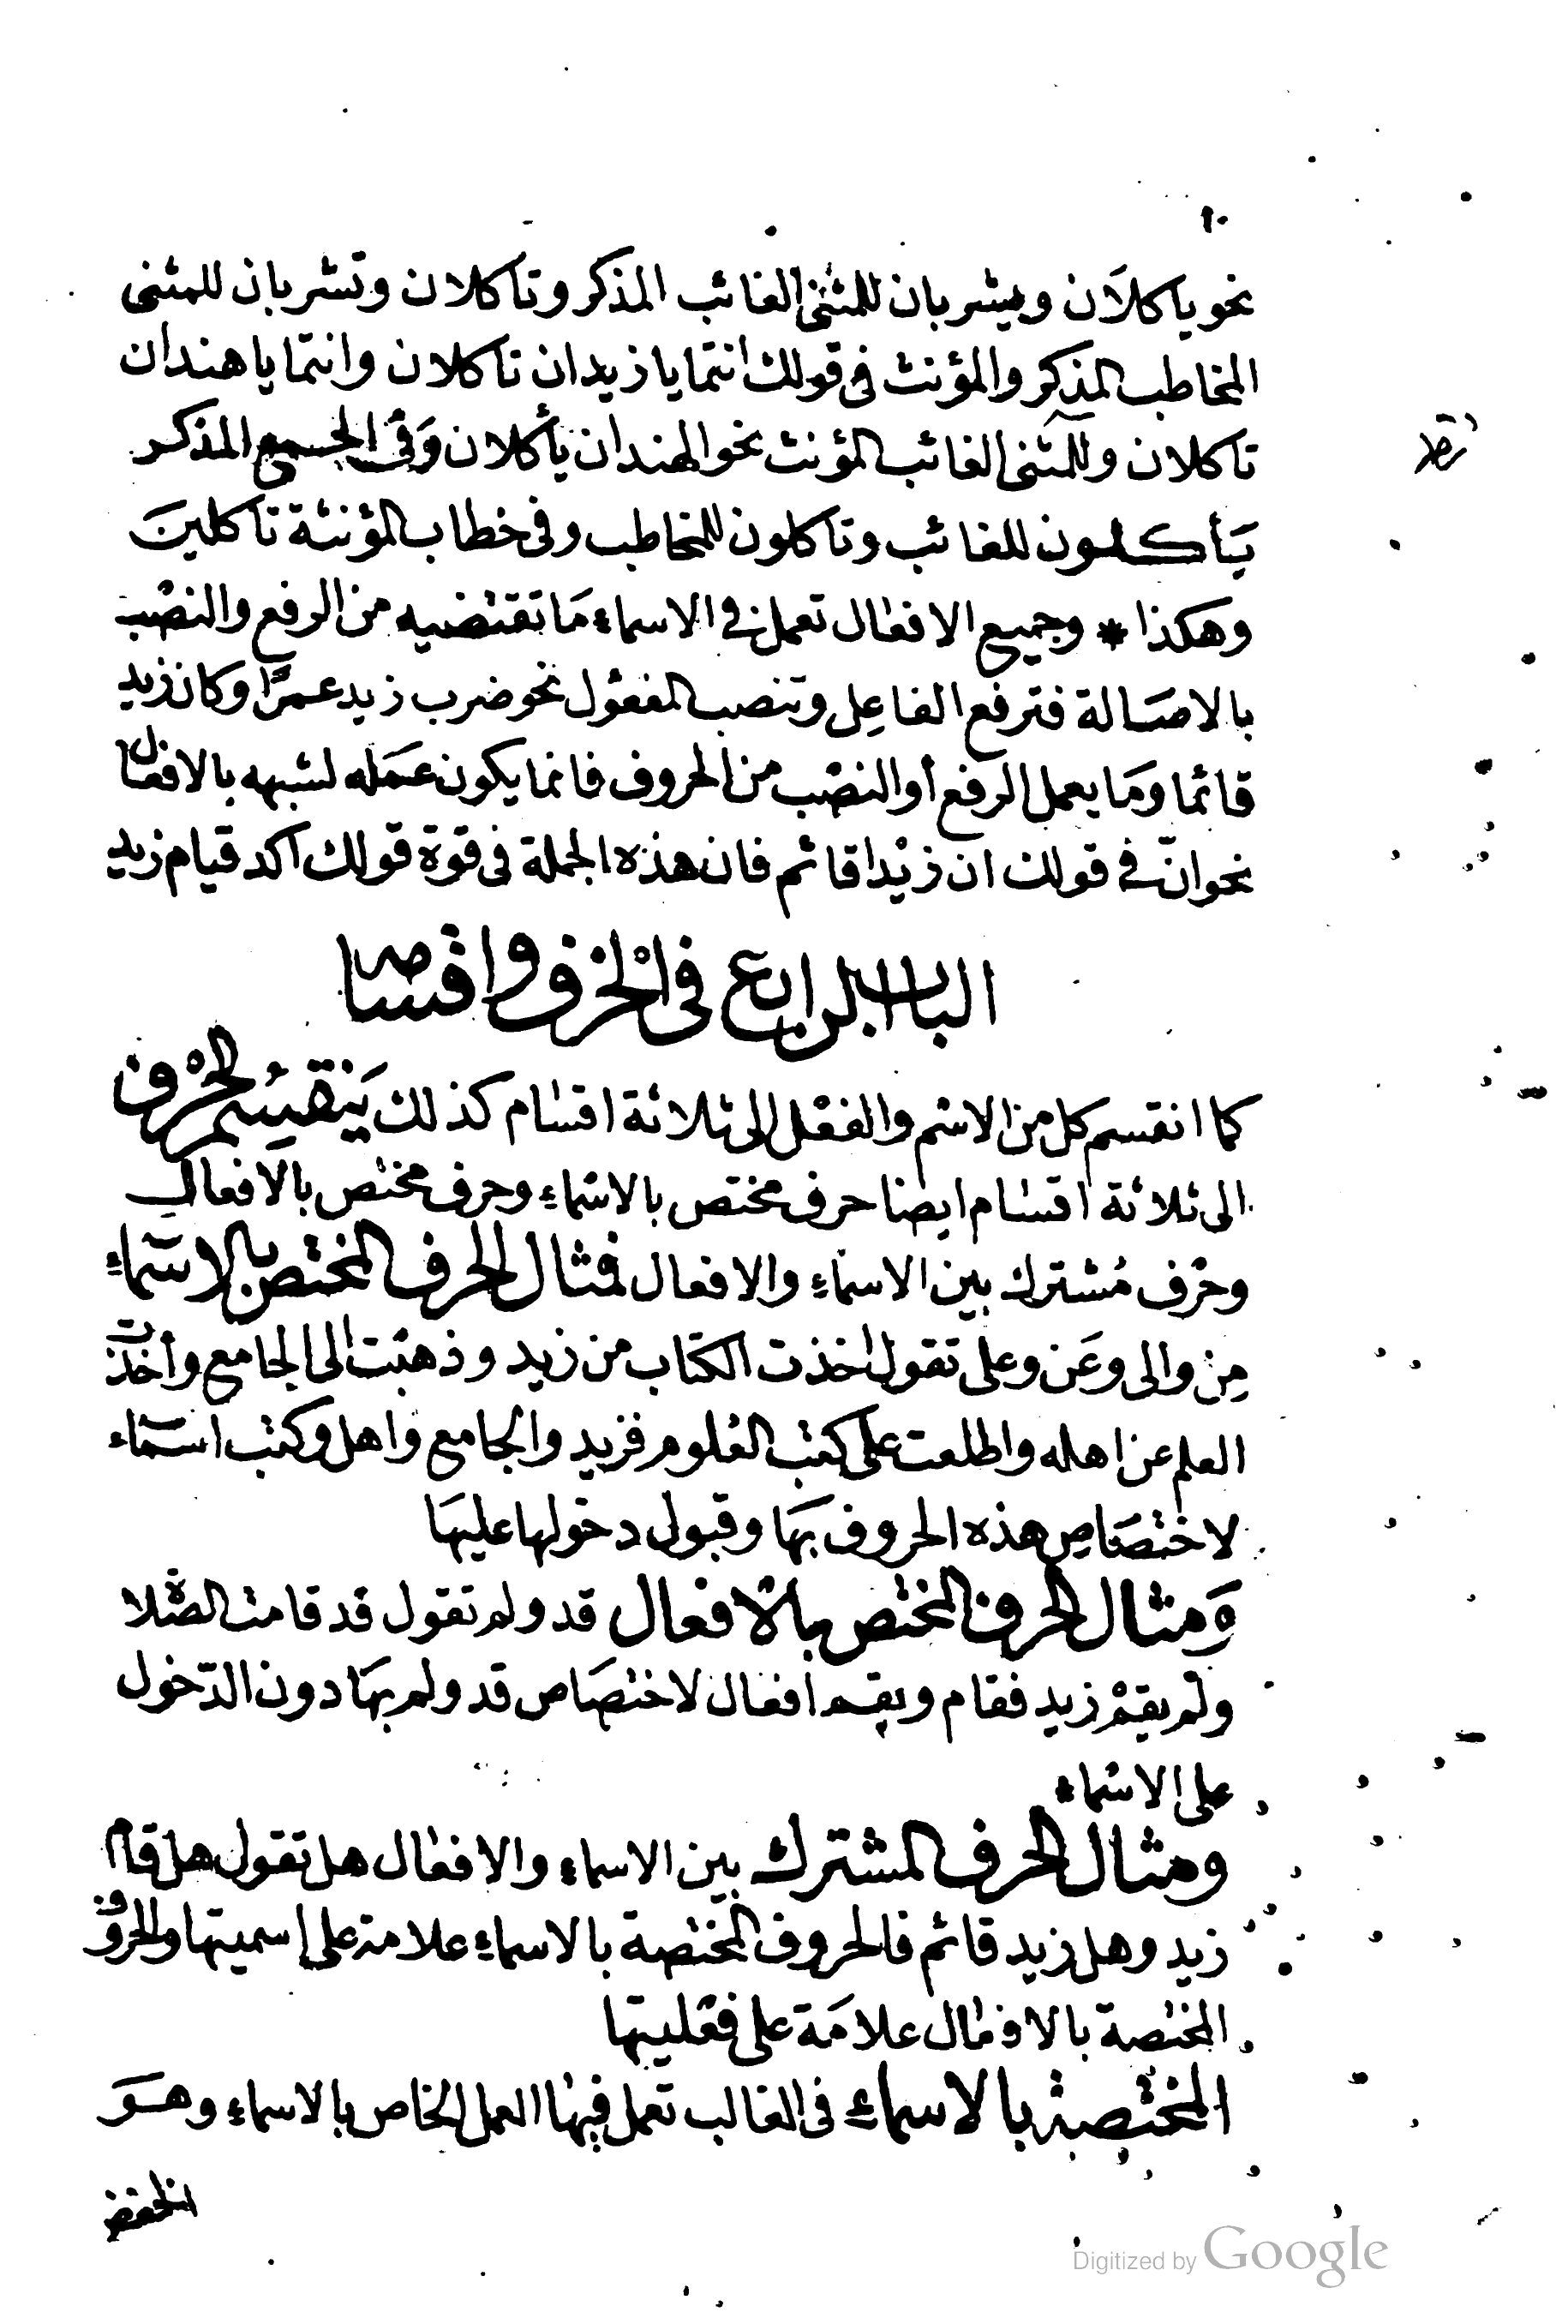 ١٠
نحو ياكلَان ويشربان للمثنى الغائب المذكر وتاكلان وتشربان للمثنى
المخاطب المذكر والمؤنث فى قولك انتما يا زيدان تاكلان وانتما يا هندان
تاكلان وللمثنى الغائب المؤنث نحو الهندان يأكلان وَفى الجمع المذكر
يَأكلون للغائب وتاكلون للمخاطب وفى خطاب المؤنثة تاكلينَ
وهكذا * وجميع الافعال تعمل فى الاسماء مَا تقتضيه من الرفع والنصْب
بالاصَالة فترفع الفاعِل وتنصب المفعُول نحو ضرب زيد عمرًا وكان زيد
قائما وَمَا يعمل الرفع أو النصْب من الحروف فانما يكون عَمَله لشبهه بالافعال
نحو انّ فى قولك ان زيْدا قائم فان هذه الجملة فى قوة قولك اكد قيام زيد
الباب الرابع فى الحْرف واقسامه
كما انقسم كل من الاسْم والفعْل الى ثلاثة اقسَام كذلك يَنقسِمُ الحْرف
الى ثلاثة اقسَام ايضا حرف مختص بالاسْماء وحرف مختص بالافعالِ
وحرْف مُشترك بين الاسمَاءِ والافعال فمثال الحرف المختص بالاسَماءِ
مِن والى وعَن وعلى تقول اخذت الكتاب من زيد وذهبْت الى الجامع وأخذت
العلم عن اهله واطلعت على كتب العُلوم فزيد والجامع واهل وكتب اسَماء
لاختصَاصِ هذه الحروف بهَا وقبول دخولها عليهَا
وَمثال الحرف المختص بالافعال قد ولم تقول قد قامت الصّلا
ولم يقمْ زيد فقام ويقم افعال لاختصَاص قد ولم بهَا دون الدّخول
على الاسْماء
ومثال الحرف المشترك بين الاسماء والافعَال هل تقول هل قام
زيد وهل زيد قائم فالحروف المختصة بالاسماءِ علامة على إسميتها والحروف
المختصة بالافعَال علامَة على فعْليتها
المختصة بالاسماءِ فى الغالب تعمل فيهَا العمل الخاص بالاسماءِ وهوَ
الخفض
Digitized by Google